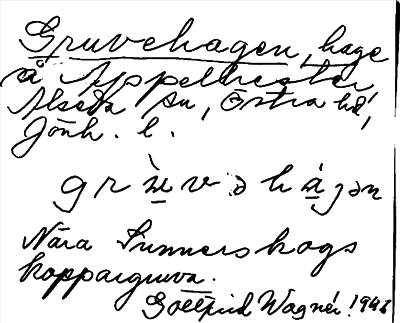 Gruvehagen, hage
å Appelhester
Alseda sn, Östra hd,
Jönk. l.
grùvəhágən
Nära Sunnerskogs
koppargruva.
Gottfrid Wagnér. 1943